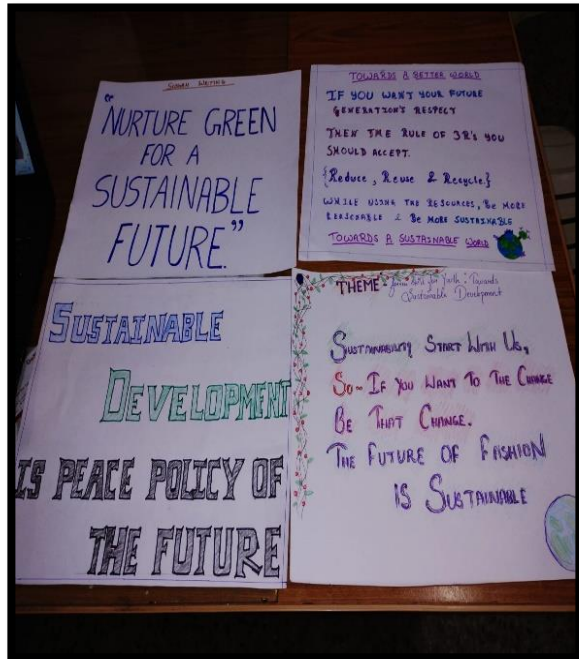 SLOGAN WRITING
"NURTURE GREEN
FOR A
SUSTAINABLE
FUTURE."
TOWARDS A BETTER WORLD
IF YOU WANT YOUR FUTURE
GENERATION'S RESPECT
THEN THE RULE OF 3R's YOU
SHOULD ACCEPT.
{Reduce, Reuse & Recycle}
WHILE USING THE RESOURCES, BE MORE
REASONABLE & BE MORE SUSTAINABLE
TOWARDS A SUSTAINABLE WORLD
SUSTAINABLE
DEVELOPMENT
IS PEACE POLICY OF
THE FUTURE
THEME - for Youth: Towards
Sustainable Development
SUSTAINABILITY START WITH US,
SO- IF YOU WANT TO THE CHANGE
BE THAT CHANGE.
THE FUTURE OF FASHION
IS SUSTAINABLE